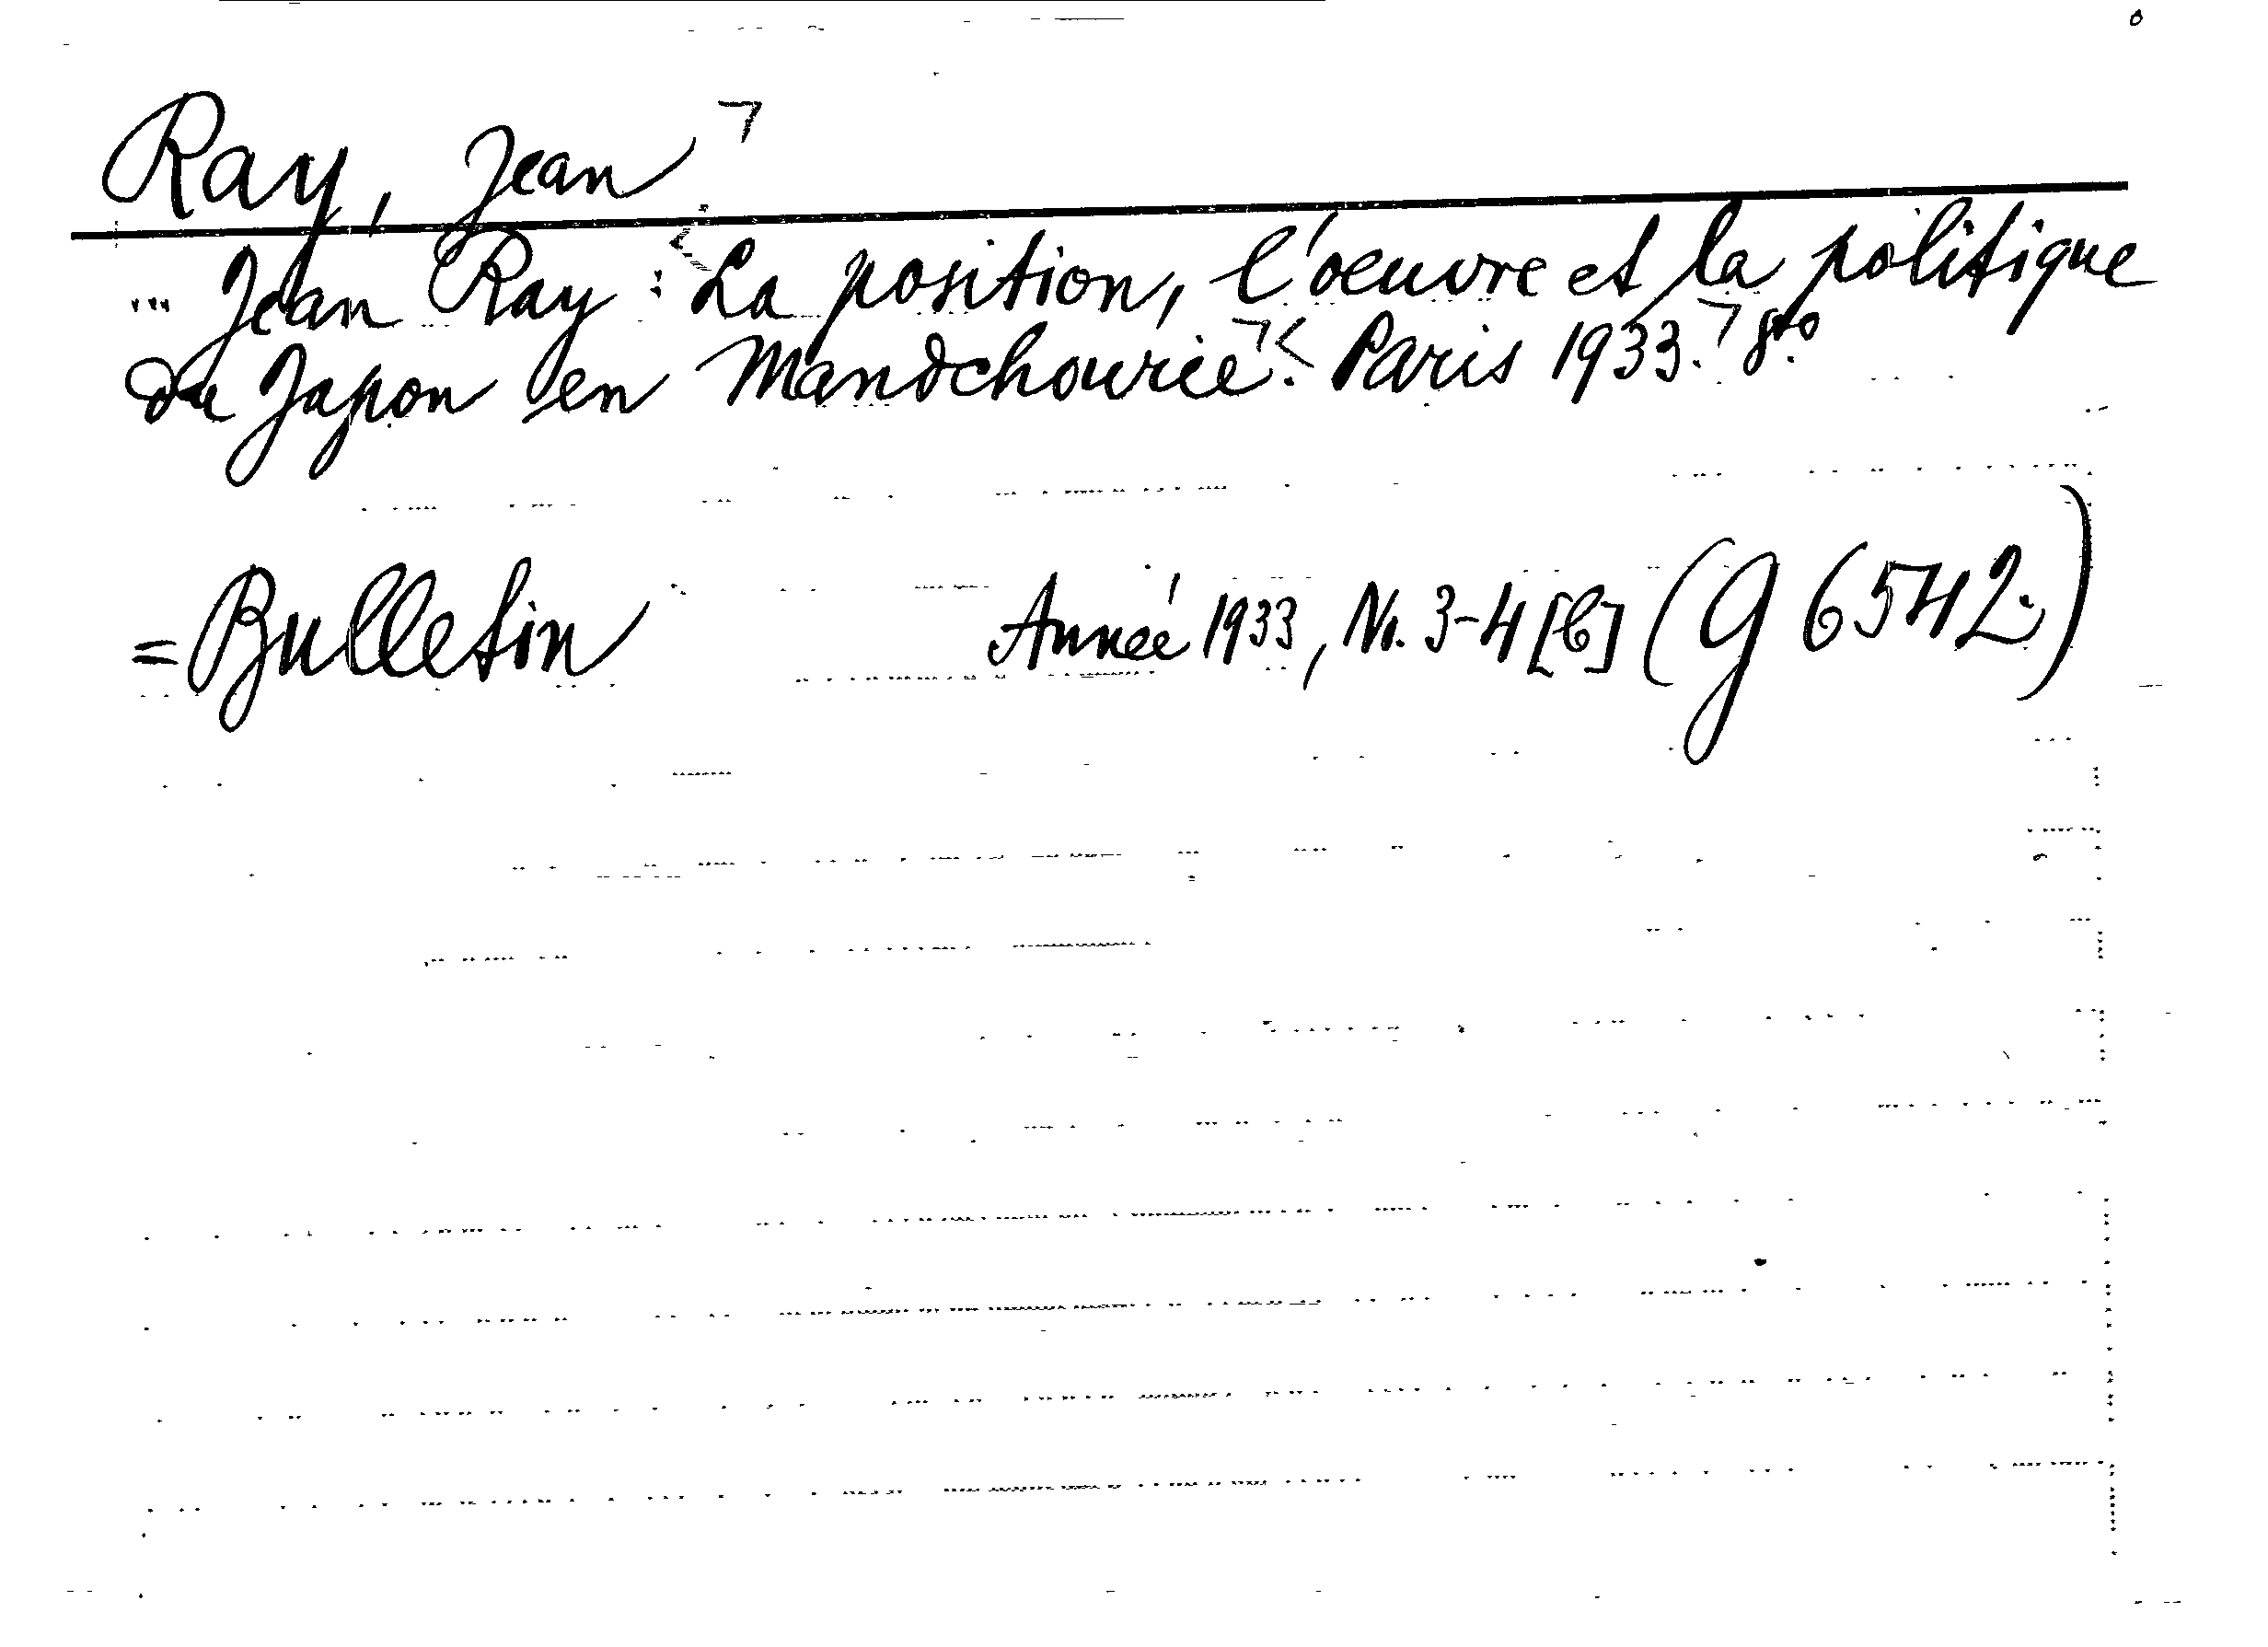 Ray, Jean
... Jean Ray : La position, l'oeuvre et la politique
du Japon en Mandchourie. Paris 1933. 8to
= Bulletin Année 1933, No. 3-4 [b] (G 6542.)